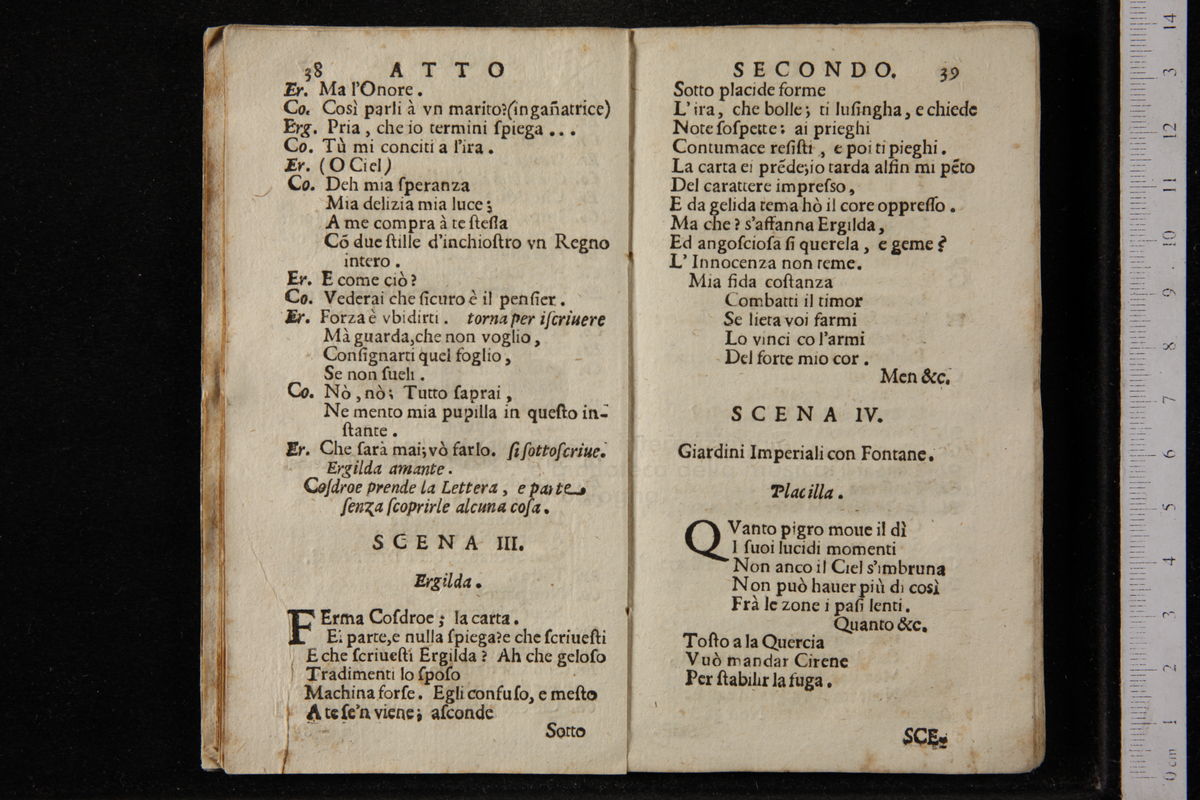 38 ATTO
Er. Ma l'Onore.
Co. Così parli à vn marito?(ingañatrice)
Erg. Pria, che io termini ſpiega ...
Co. Tù mi conciti a l'ira.
Er. (O Ciel)
Co. Deh mia ſperanza
Mia delizia mia luce;
A me compra à te ſteſſa
Cõ due ſtille d'inchioſtro vn Regno
intero.
Er. E come ciò?
Co. Vederai che ſicuro è il penſier.
Er. Forza è vbidirti. torna per iſcriuere
Mà guarda,che non voglio,
Conſignarti quel foglio,
Se non ſueli.
Co. Nò, nò; Tutto ſaprai,
Ne mento mia pupilla in queſto in-
ſtante.
Er. Che ſarà mai;vò farlo. ſi ſottoſcriue.
Ergilda amante.
Coſdroe prende la Lettera, e parte
ſenza ſcoprirle alcuna coſa.
SCENA III.
Ergilda.
FErma Coſdroe; la carta.
Ei parte,e nulla ſpiega?e che ſcriueſti
E che ſcriueſti Ergilda? Ah che geloſo
Tradimenti lo ſpoſo
Machina forſe. Egli confuſo, e meſto
A te ſe'n viene; aſconde
Sotto
SECONDO. 39
Sotto placide forme
L'ira, che bolle; ti luſingha, e chiede
Note ſoſpette: ai prieghi
Contumace reſiſti, e poi ti pieghi.
La carta ei prẽde;io tarda alfin mi pẽto
Del carattere impreſso,
E da gelida tema hò il core oppreſſo.
Ma che? s'affanna Ergilda,
Ed angoſcioſa ſi querela, e geme?
L'Innocenza non teme.
Mia fida coſtanza
Combatti il timor
Se lieta voi farmi
Lo vinci co l'armi
Del forte mio cor.
Men &c.
SCENA IV.
Giardini Imperiali con Fontane.
Placilla.
QVanto pigro moue il dì
I ſuoi lucidi momenti
Non anco il Ciel s'imbruna
Non può hauer più di così
Frà le zone i paſi lenti.
Quanto &c.
Toſto a la Quercia
Vuò mandar Cirene
Per ſtabilir la fuga.
SCE-
0 cm 1 2 3 4 5 6 7 8 9 10 11 12 13 14